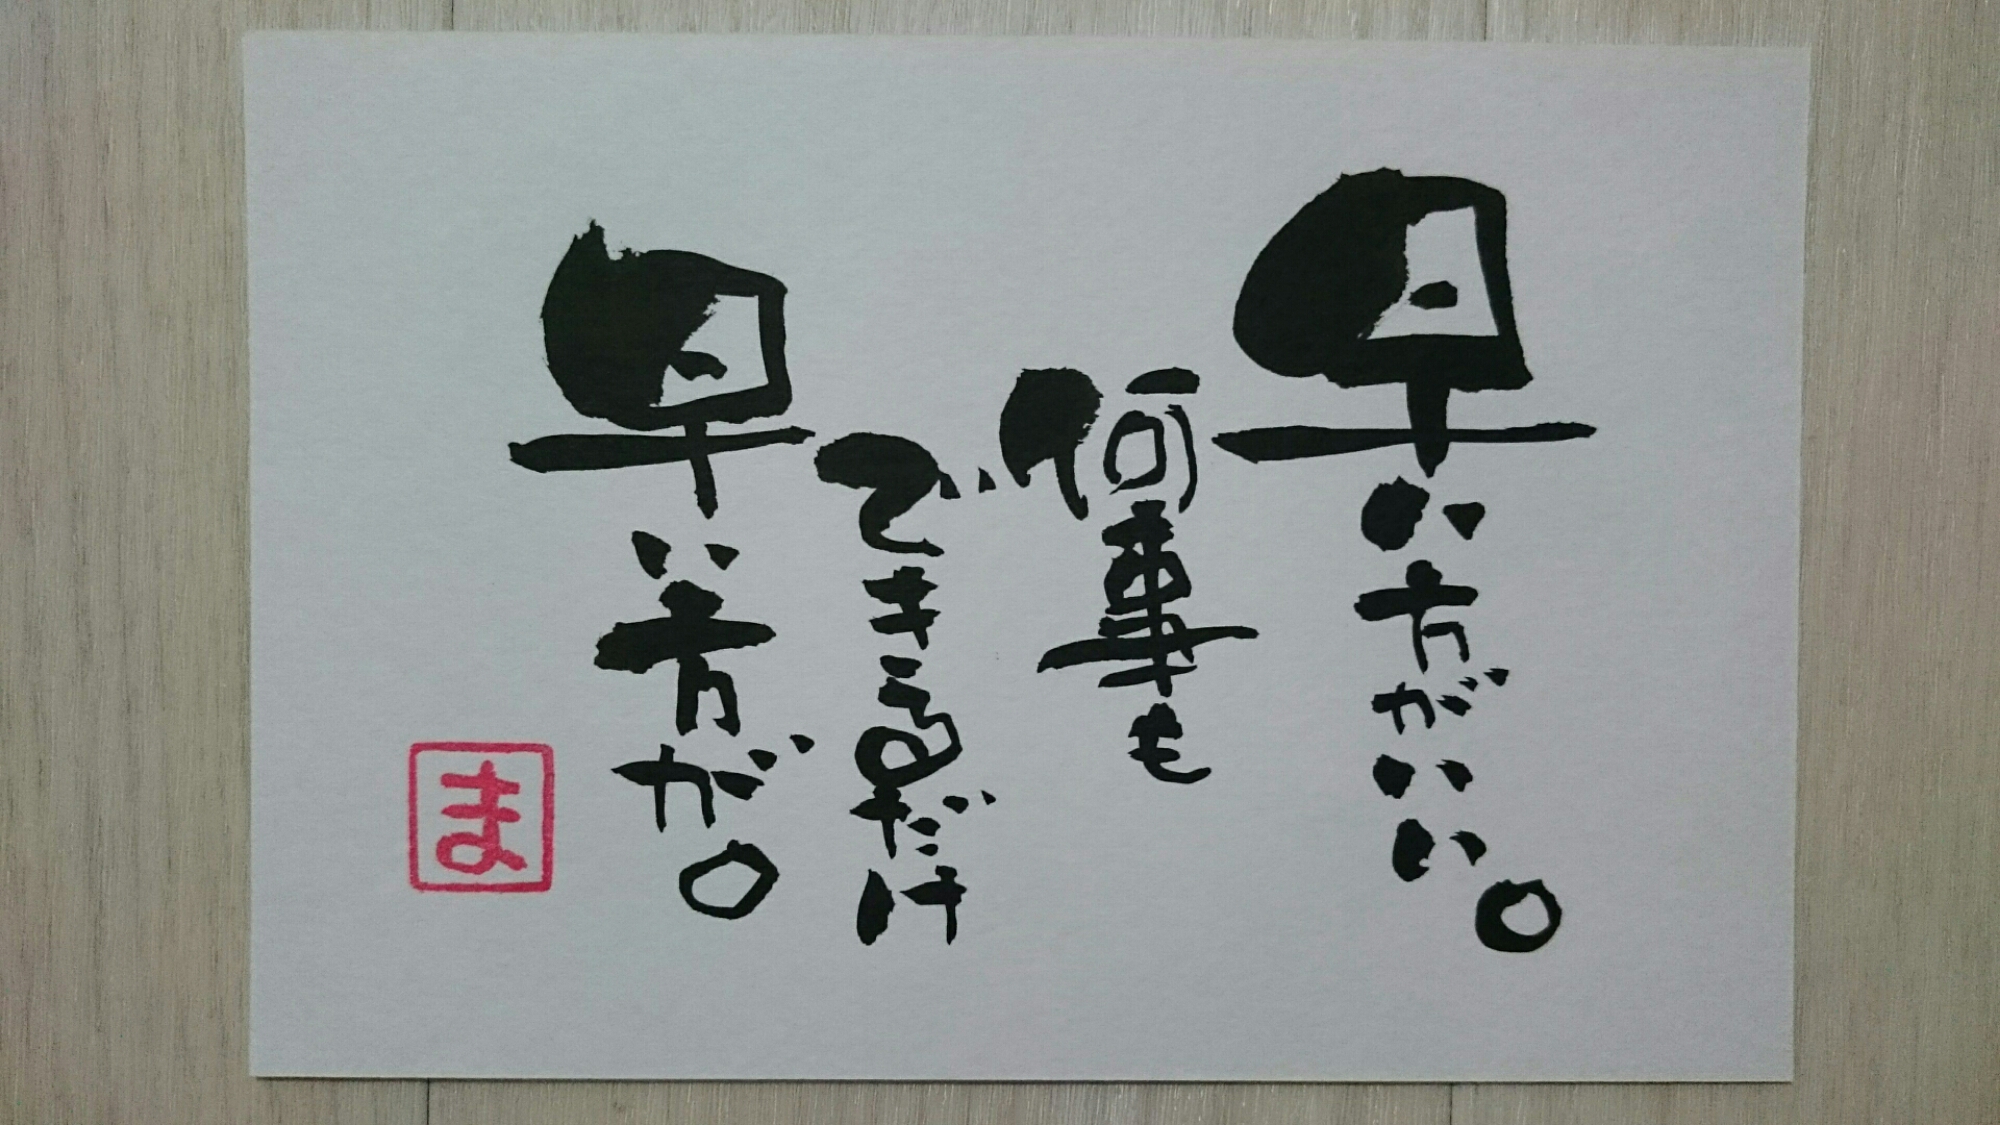 早い方がいい。
何事も
できるだけ
早い方が。
ま